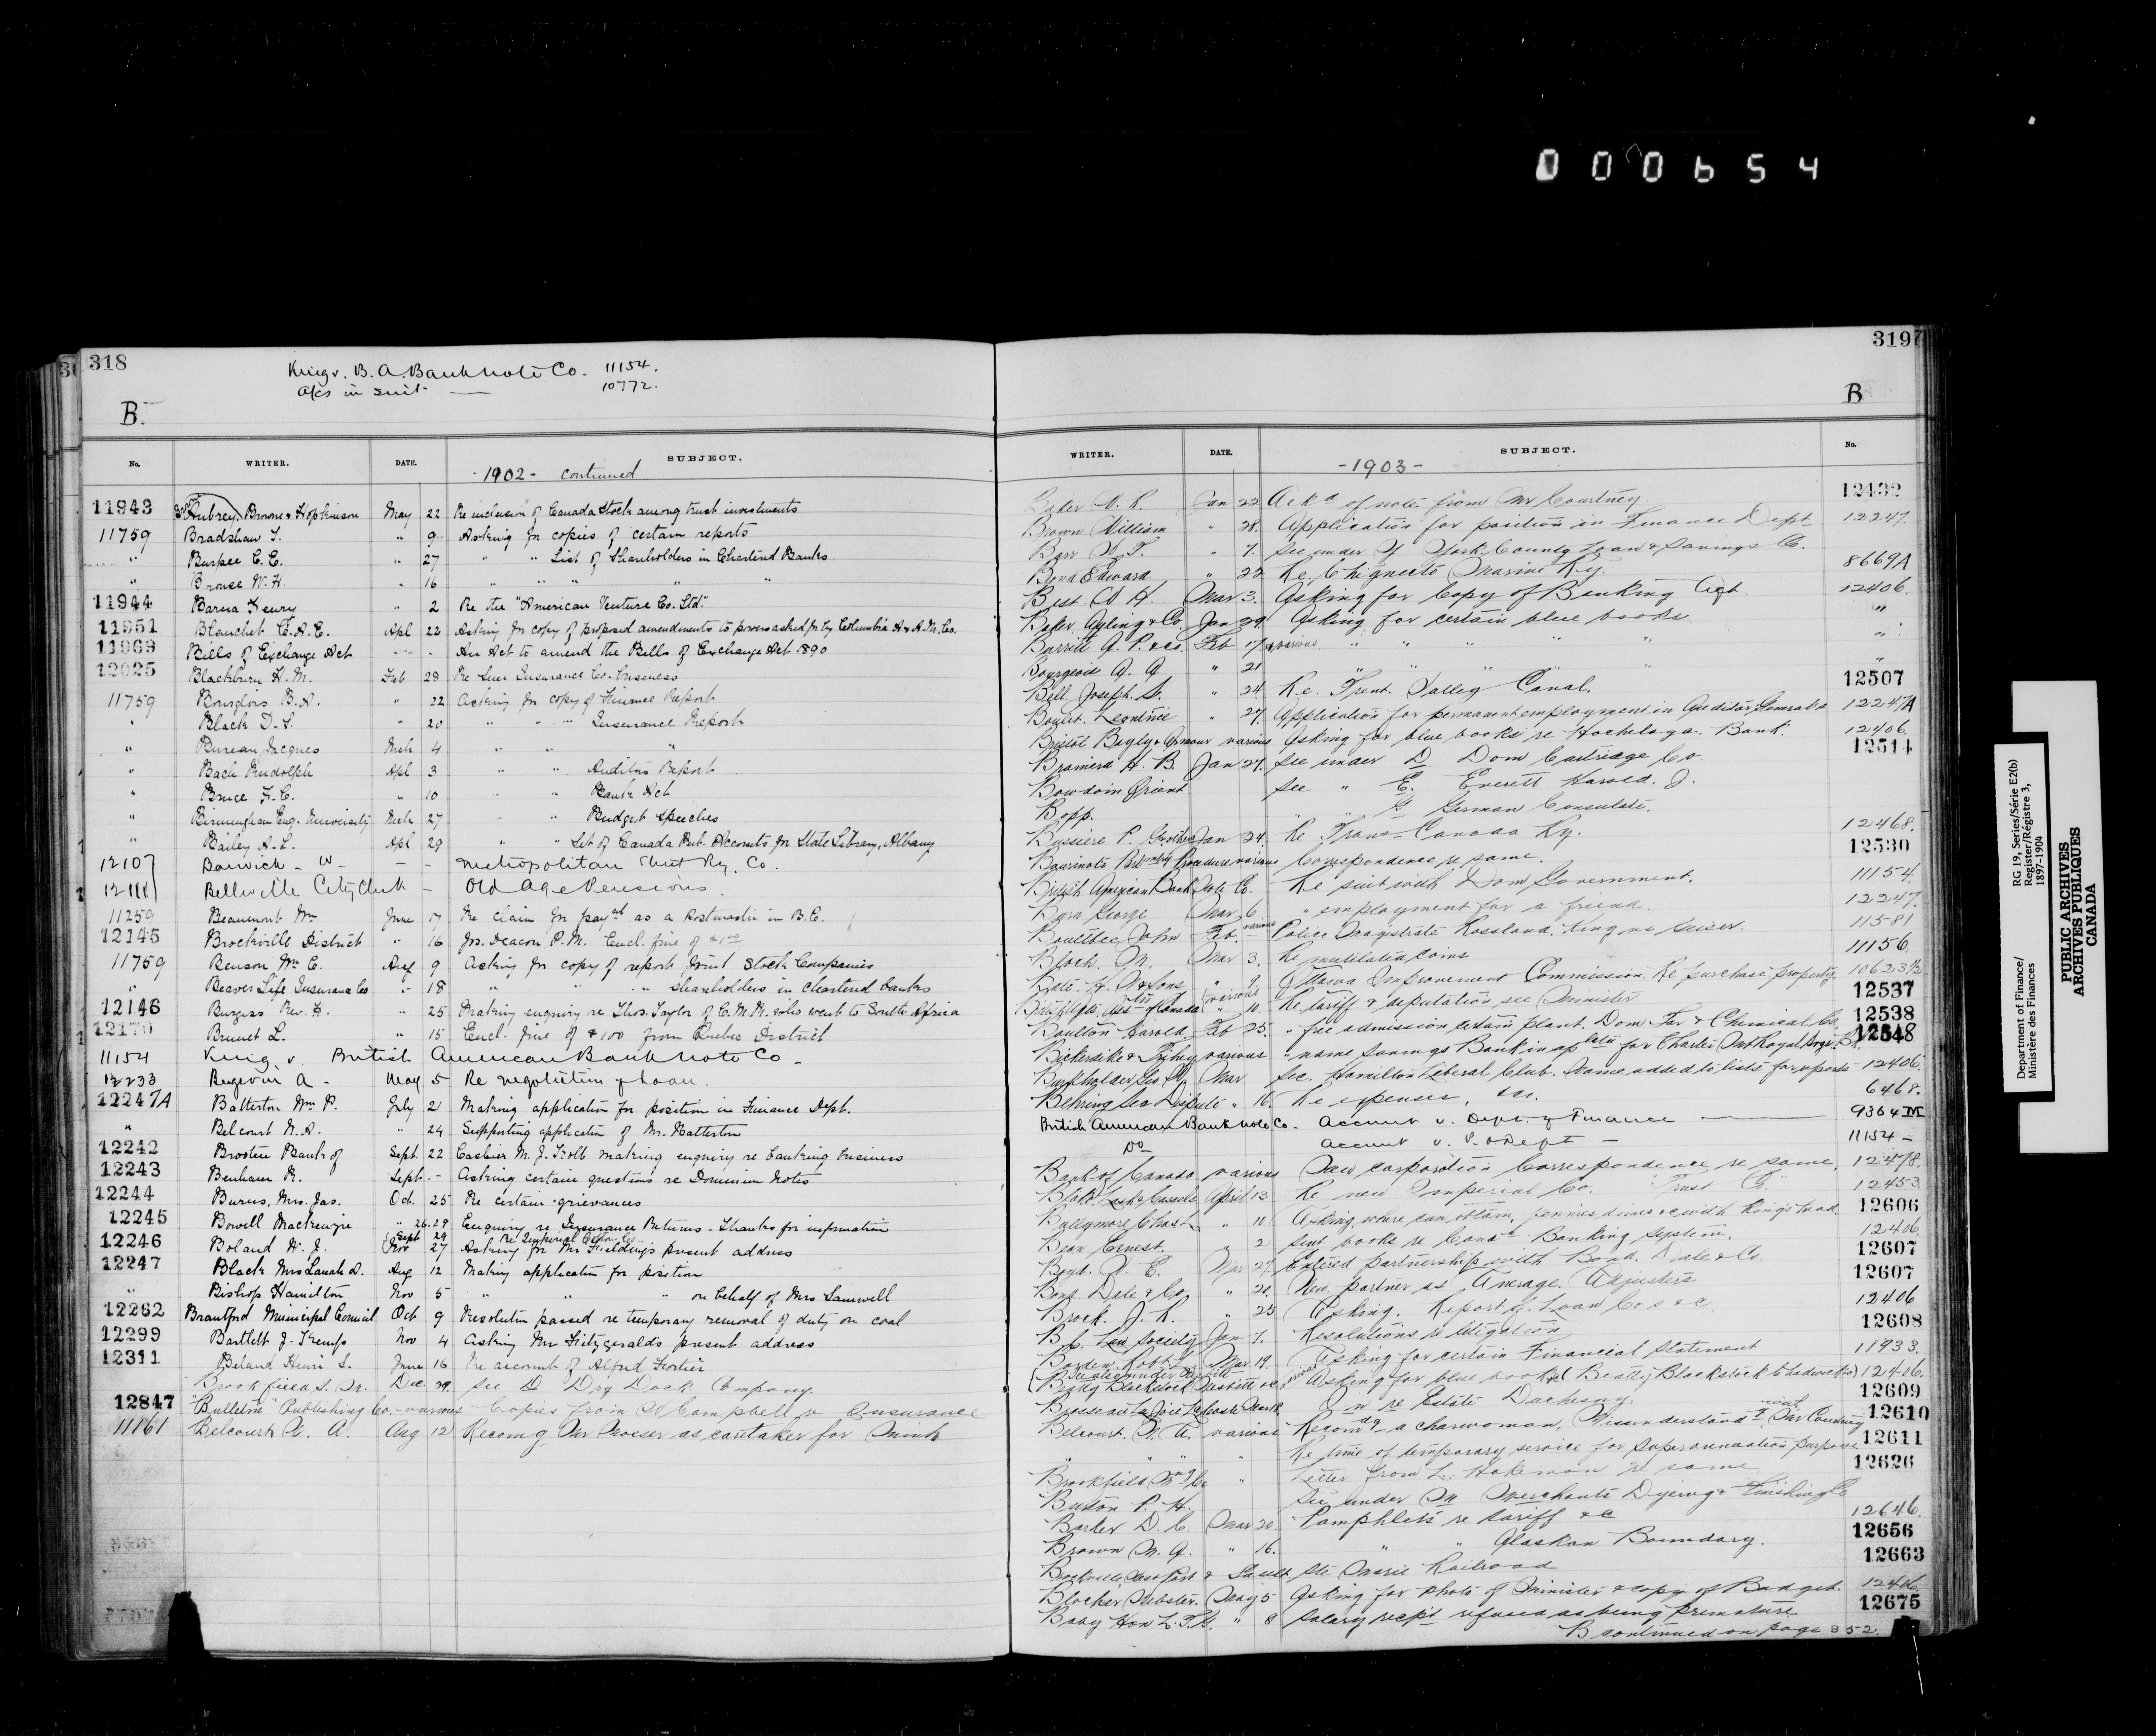 000654
318
King v. B. A. Bank Note Co. 11154.
a/cs in suit — 10772.
B.
No. WRITER. DATE. SUBJECT.
-1902- continued
11943 Aubrey, Browne & Hopkinson May 22 Re inclusion of Canada Stock among trust investments
11759 Bradshaw T. " 9 Asking for copies of certain reports
" Burpee C. E. " 27 " " List of Shareholders in Chartered Banks
" Brouse W. H. " 16 " " " " "
11944 Barna Henry " 2 Re the "American Venture Co. Ltd."
11951 Blanchet C. A. E. Apl 22 Asking for copy of proposed amendments to powers asked for by Columbia
11969 Bills of Exchange Act - - - An Act to amend the Bills of Exchange Act 1890
12025 Blackburn H. M. Feb 28 Re Sun Insurance Co. business
11759 Bourglois B. A. " 22 Asking for copy of Finance Report
" Black D. S. " 20 " " " Insurance Report
" Bureau Jacques Mch 4 " " "
" Bach Rudolph Apl 3 " " Auditors Report
" Bruce F. C. " 10 " " Bank Act
" Birmingham Eng. University Mch 27 Budget Speeches
" Bailey A. L. Apl 29 " " Set of Canada Pub. Accounts for State Library, Albany
12107 Barwick - W - - - Metropolitan Ry. Co.
12111 Belleville City Clerk - Old Age Pensions
11259 Beaumont Wm June 17 Re claim for payt as a Postmaster in B.C.
12145 Brockville District " 16 Jos. Deacon P. M. Encl. fine of
11759 Benson Wm C. Aug 9 Asking for copy of report Joint Stock Companies
" Beaver Life Insurance Co " 18 " " " Shareholders in Chartered banks
12146 Burgess Rev. H. " 25 Making enquiry re Thos. Taylor of C. M. R. who went to South Africa
12170 Brunet L. " 15 Encl. fine of $100 from Quebec District
11154 King v. British American Bank Note Co -
12233 Bergevin A - May 5 Re negotiation of loan.
12247A Batterton Wm P. July 21 Making application for position in Finance Dept.
" Belcourt N. A. " 24 Supporting application of Mr. Batterton
12242 Bank of Sept. 22 Cashier M. J. Kolb making enquiry re banking business
12243 Benham R. Sept. - Asking certain questions re Dominion Notes
12244 Burns, Mrs. Jas. Oct. 25 Re certain grievances
12245 Bowell Mackenzie " 26.29 Enquiry re Insurance Returns - Thanks for information
12246 Boland W. J. Nov 27 Asking for Mr Fielding's present address
12247 Black Mrs Sarah A. Aug 12 Making application for position
" Bishop Hamilton Nov 5 " " " on behalf of Mrs Samwell
12262 Brantford Municipal Council Oct 9 Resolution passed re temporary removal of duty on coal
12299 Bartlett J. Kemp Nov 4 Asking Mr Fitzgerald's present address
12311 Beland Henri S. June 16 Re account of Alfred Fortier
Brookfield S. M. Dec. 29. See D Dry Dock Company.
12847 "Bulletin" Publishing Co. - various Copies from Campbell re Insurance
11161 Belcourt N. A. Aug 12 Recomg Mr Moeser as caretaker for Mint
3197
B
WRITER. DATE. SUBJECT. No.
-1903-
Baker Jan 22 Ackd of note from Mr Courtney. 12432
Brown William " 28. Application for position in Finance Dept 12247.
Barr " 7. See under Y York County Loan & Savings Co.
Bond Edward " 22 Re. Chignecto Marine Ry. 8669A
Best W. H. Mar 3. Asking for Copy of Banking Act 12406.
Baker, Ayling & Co. Jan 29. Asking for certain blue books. "
Burritt A. P. & Co. Feb 17 & various " " " " "
Bourgeois A. G " 21 " " " " "
Bell. Joseph. S. " 24 Re. Trent Valley Canal. 12507
Boulet. Leontine " 27. Application for permanent employment in Auditor Generals 12247A
Bristol Bayly & Armour various Asking for blue books re Hochelaga Bank. 12406.
Bramera H. B. Jan 27. See under D. Dom Cartridge Co 12514
Bowdoin Orient See " E. Everett Harold. J.
Bopp. " " G German Consulate.
Bussiere P. Jan 24. Re Trans-Canada Ry. 12468.
Bourinots Parly Procedure various Correspondence re same. 12530
British American Bank Note Co. Re suit with Dom Government. 11154
George Mar 6. " employment for a friend. 12247.
Boultbee John Feb. various Police Magistrate Rossland. King vs 11581
Block. M. Mar 3. Re mutilated coins 11156.
& Sons " 9. Ottawa Improvement Commission. Re purchase property. 10623½
of Canada various 10. Re tariff & deputation see Minister 12537
Boulton Harold Feb 25. " free admission certain plant. Dom Tar & Chemical Co. 12538
Bickerdike various " name Savings Bank in for Charter 12548
Burkholder Mar See. Hamilton Liberal Club. Name added to lists for reports 12406.
Behring Sea Dispute " 16. Re expenses, &c. 6468.
British American Bank Note Co - Account v. Dept. of Finance — 9364
Do Account v. P.O Dept — 11154 -
Bank of Canada various New corporation Correspondence re same. 12478.
Blake Lash & Cassels April 13 Re new Imperial Co. Trust Co. 12453
Bullymore Chas " 11 Asking where can obtain pennies dimes &c with King's head. 12606
Bean Ernest. " 2 Sent books re Canada Banking System. 12406
Boyd. Mar 27. Entered partnership with Bond. Dale & Co. 12607
Bond Dale & Co " 20. New partner as Average Adjusters 12607
Brock. J. R. " 25 Asking Report of Loan Co's &c 12406
B. C. Law Society Jan 7. Resolutions re litigation 12608
Borden Robt L. Mar 19. Asking for certain Financial Statement 11933.
Beatty Blackstock Nesbitt & Co various Asking for blue book (& Beatty Blackstock Chadwick) 12406.
Brosseau Mar re Estate Duchesnay. 12609
Belcourt. N. A. various Recomdg a charwoman. Misunderstandg with Mr Courtney 12610
" " " Re time of temporary service for Superannuation purposes. 12611
Brookfield Mng Co " Letter from L. Hakeman re same 12626
Buston P. H. See under M Merchants Dyeing & Finishing Co
Barker D. C. Mar 20. Pamphlets re tariff &c 12646.
Brown M. G. " 16. " " Alaskan Boundary. 12656
Brockville & Sault Ste Marie Railroad 12663
Blocher Webster. May 5 Asking for photo of Minister & copy of Budget. 12406.
Baby Hon " 8 Salary recpt refused as being premature 12675
B continued on page 352.
Department of Finance/
Ministère des Finances
RG 19, Series/Série E2(b)
Register/Registre 3,
1897-1904
PUBLIC ARCHIVES
ARCHIVES PUBLIQUES
CANADA